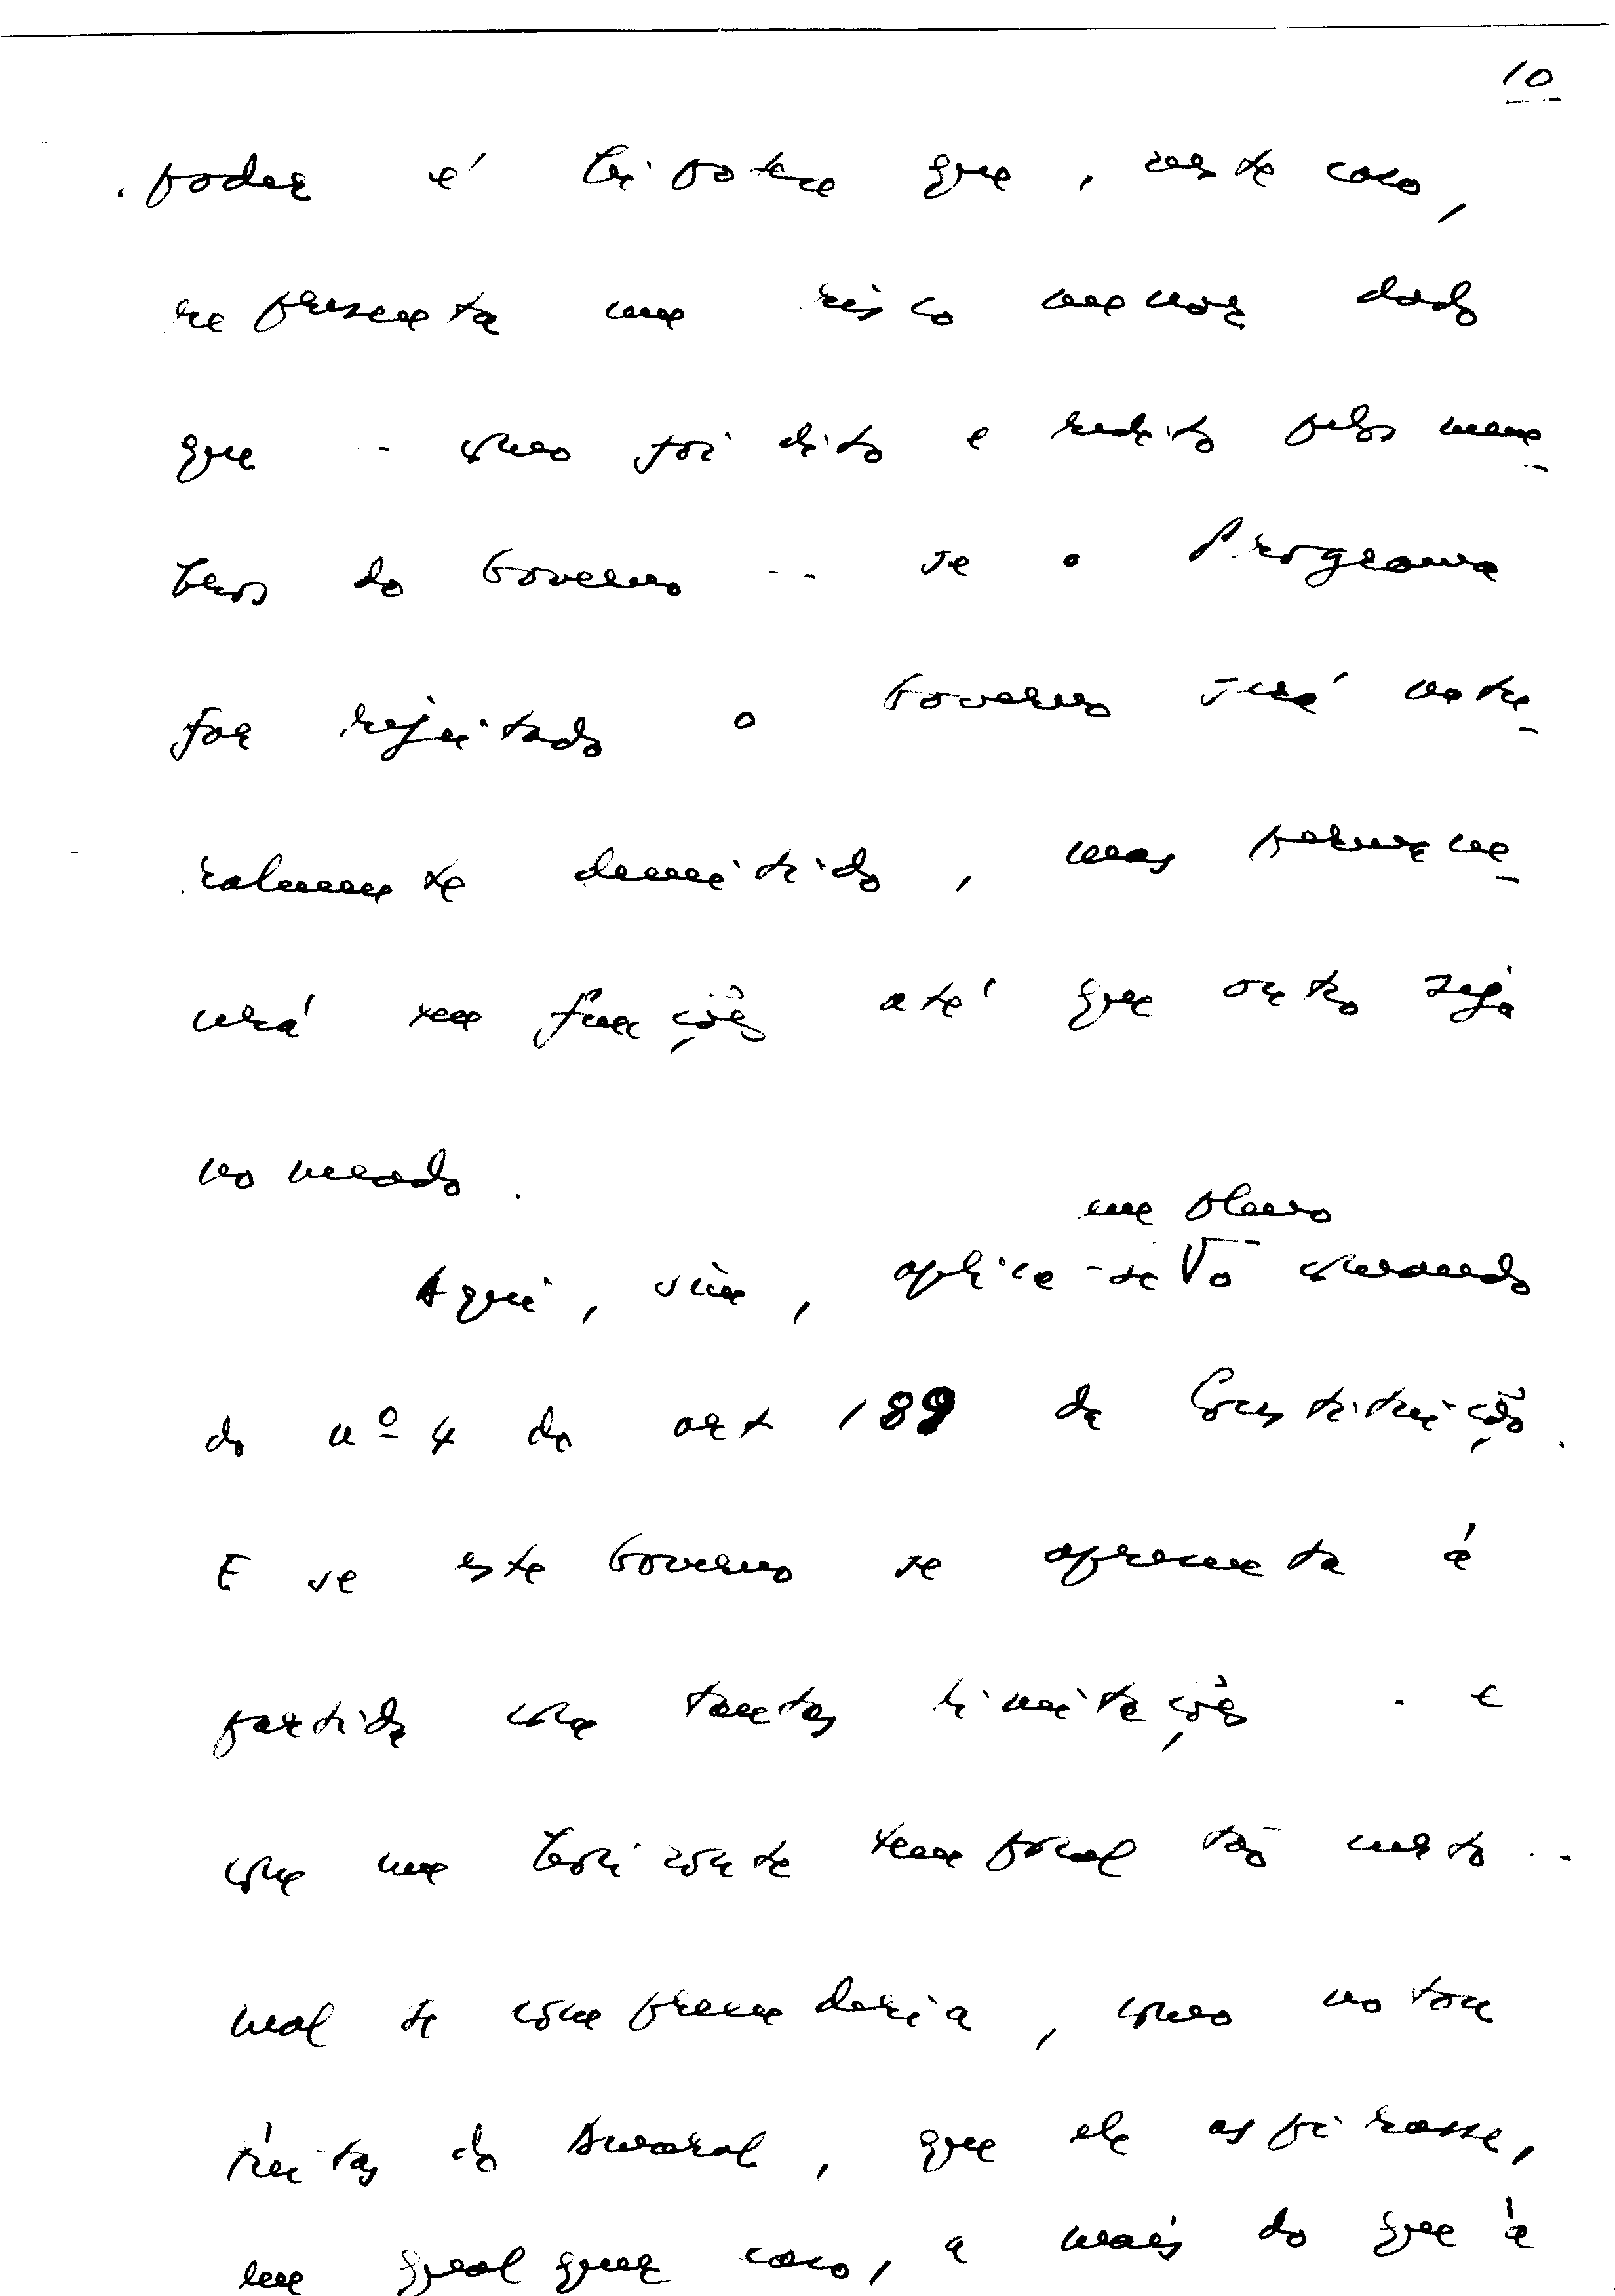 10
poder é hipótese que, neste caso,
representa um risco menor dado
que - como foi dito e redito pelos mem-
bros do Governo -- se o Programa
for rejeitado o Governo será natu-
ralmente demitido, mas permane-
cerá em funções até que outro seja
nomeado.
em pleno
Aqui, sim, aplica-se V o comando
do nº 4 do art 189 da Constituição.
E se este Governo se apresenta à
partida com tantas limitações - e
com um horizonte temporal tão curto --
mal se compreenderia, como notou
Freitas do Amaral, que ele aspirasse,
em qualquer caso, a mais do que à